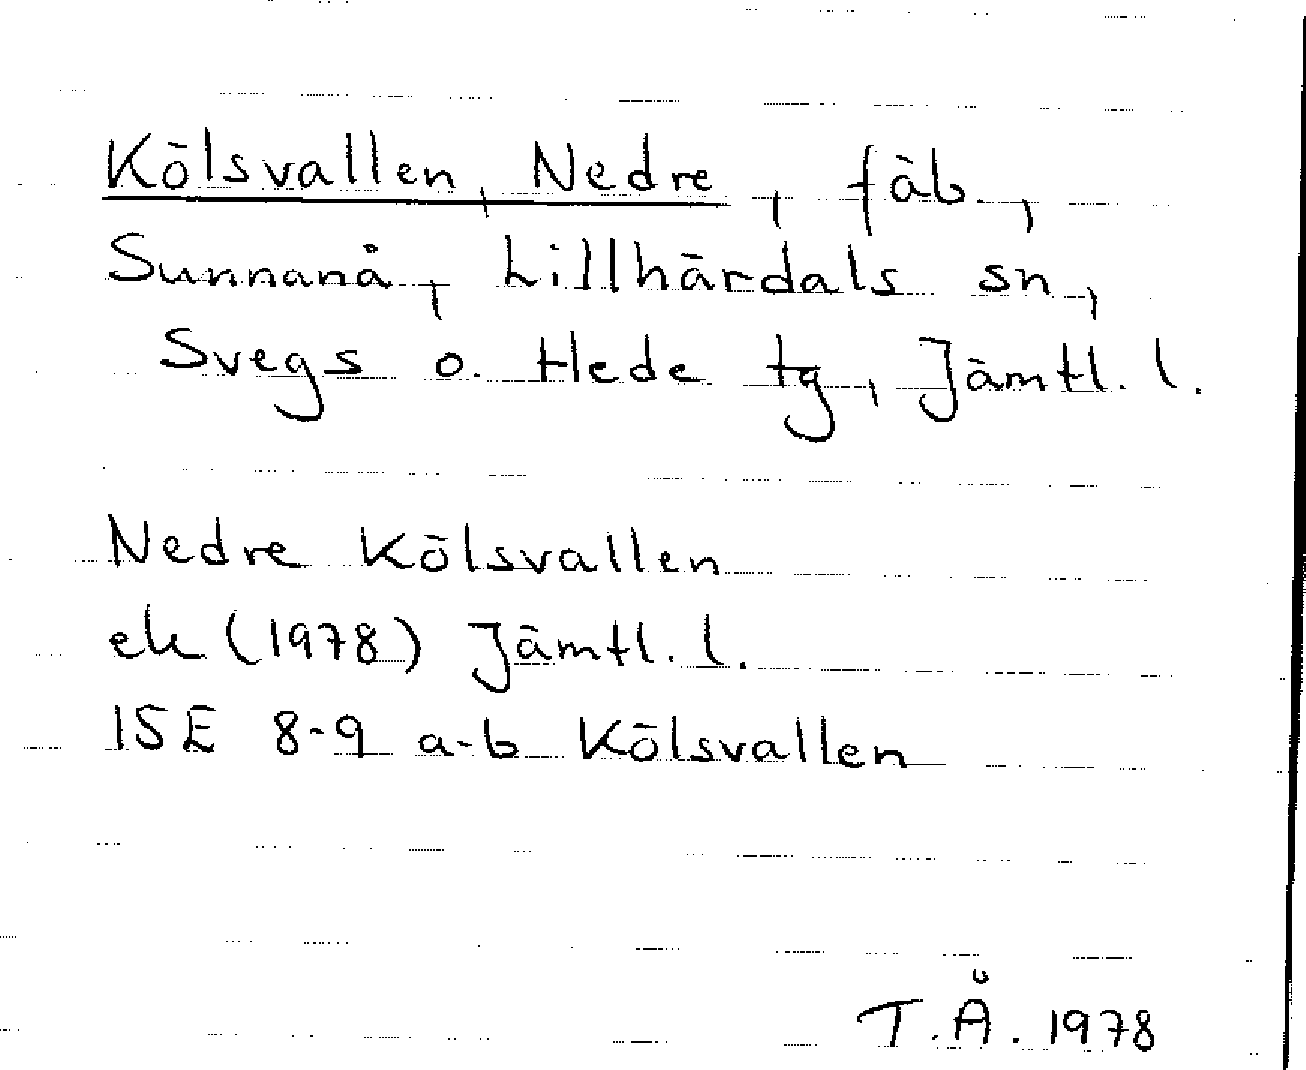 Kölsvallen, Nedre, fäb.,
Sunnanå, Lillhärdals sn,
Svegs o. Hede tg, Jämtl. l.
Nedre Kölsvallen
ek (1978) Jämtl. l.
15E 8-9 a-b Kölsvallen
T.Å. 1978